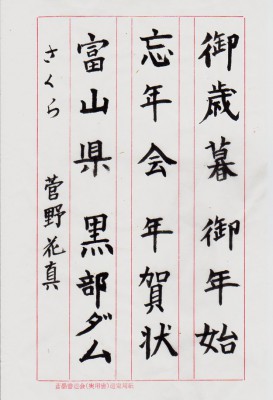 御歳暮 御年始
忘年会 年賀状
富山県 黒部ダム
さくら 菅野花真